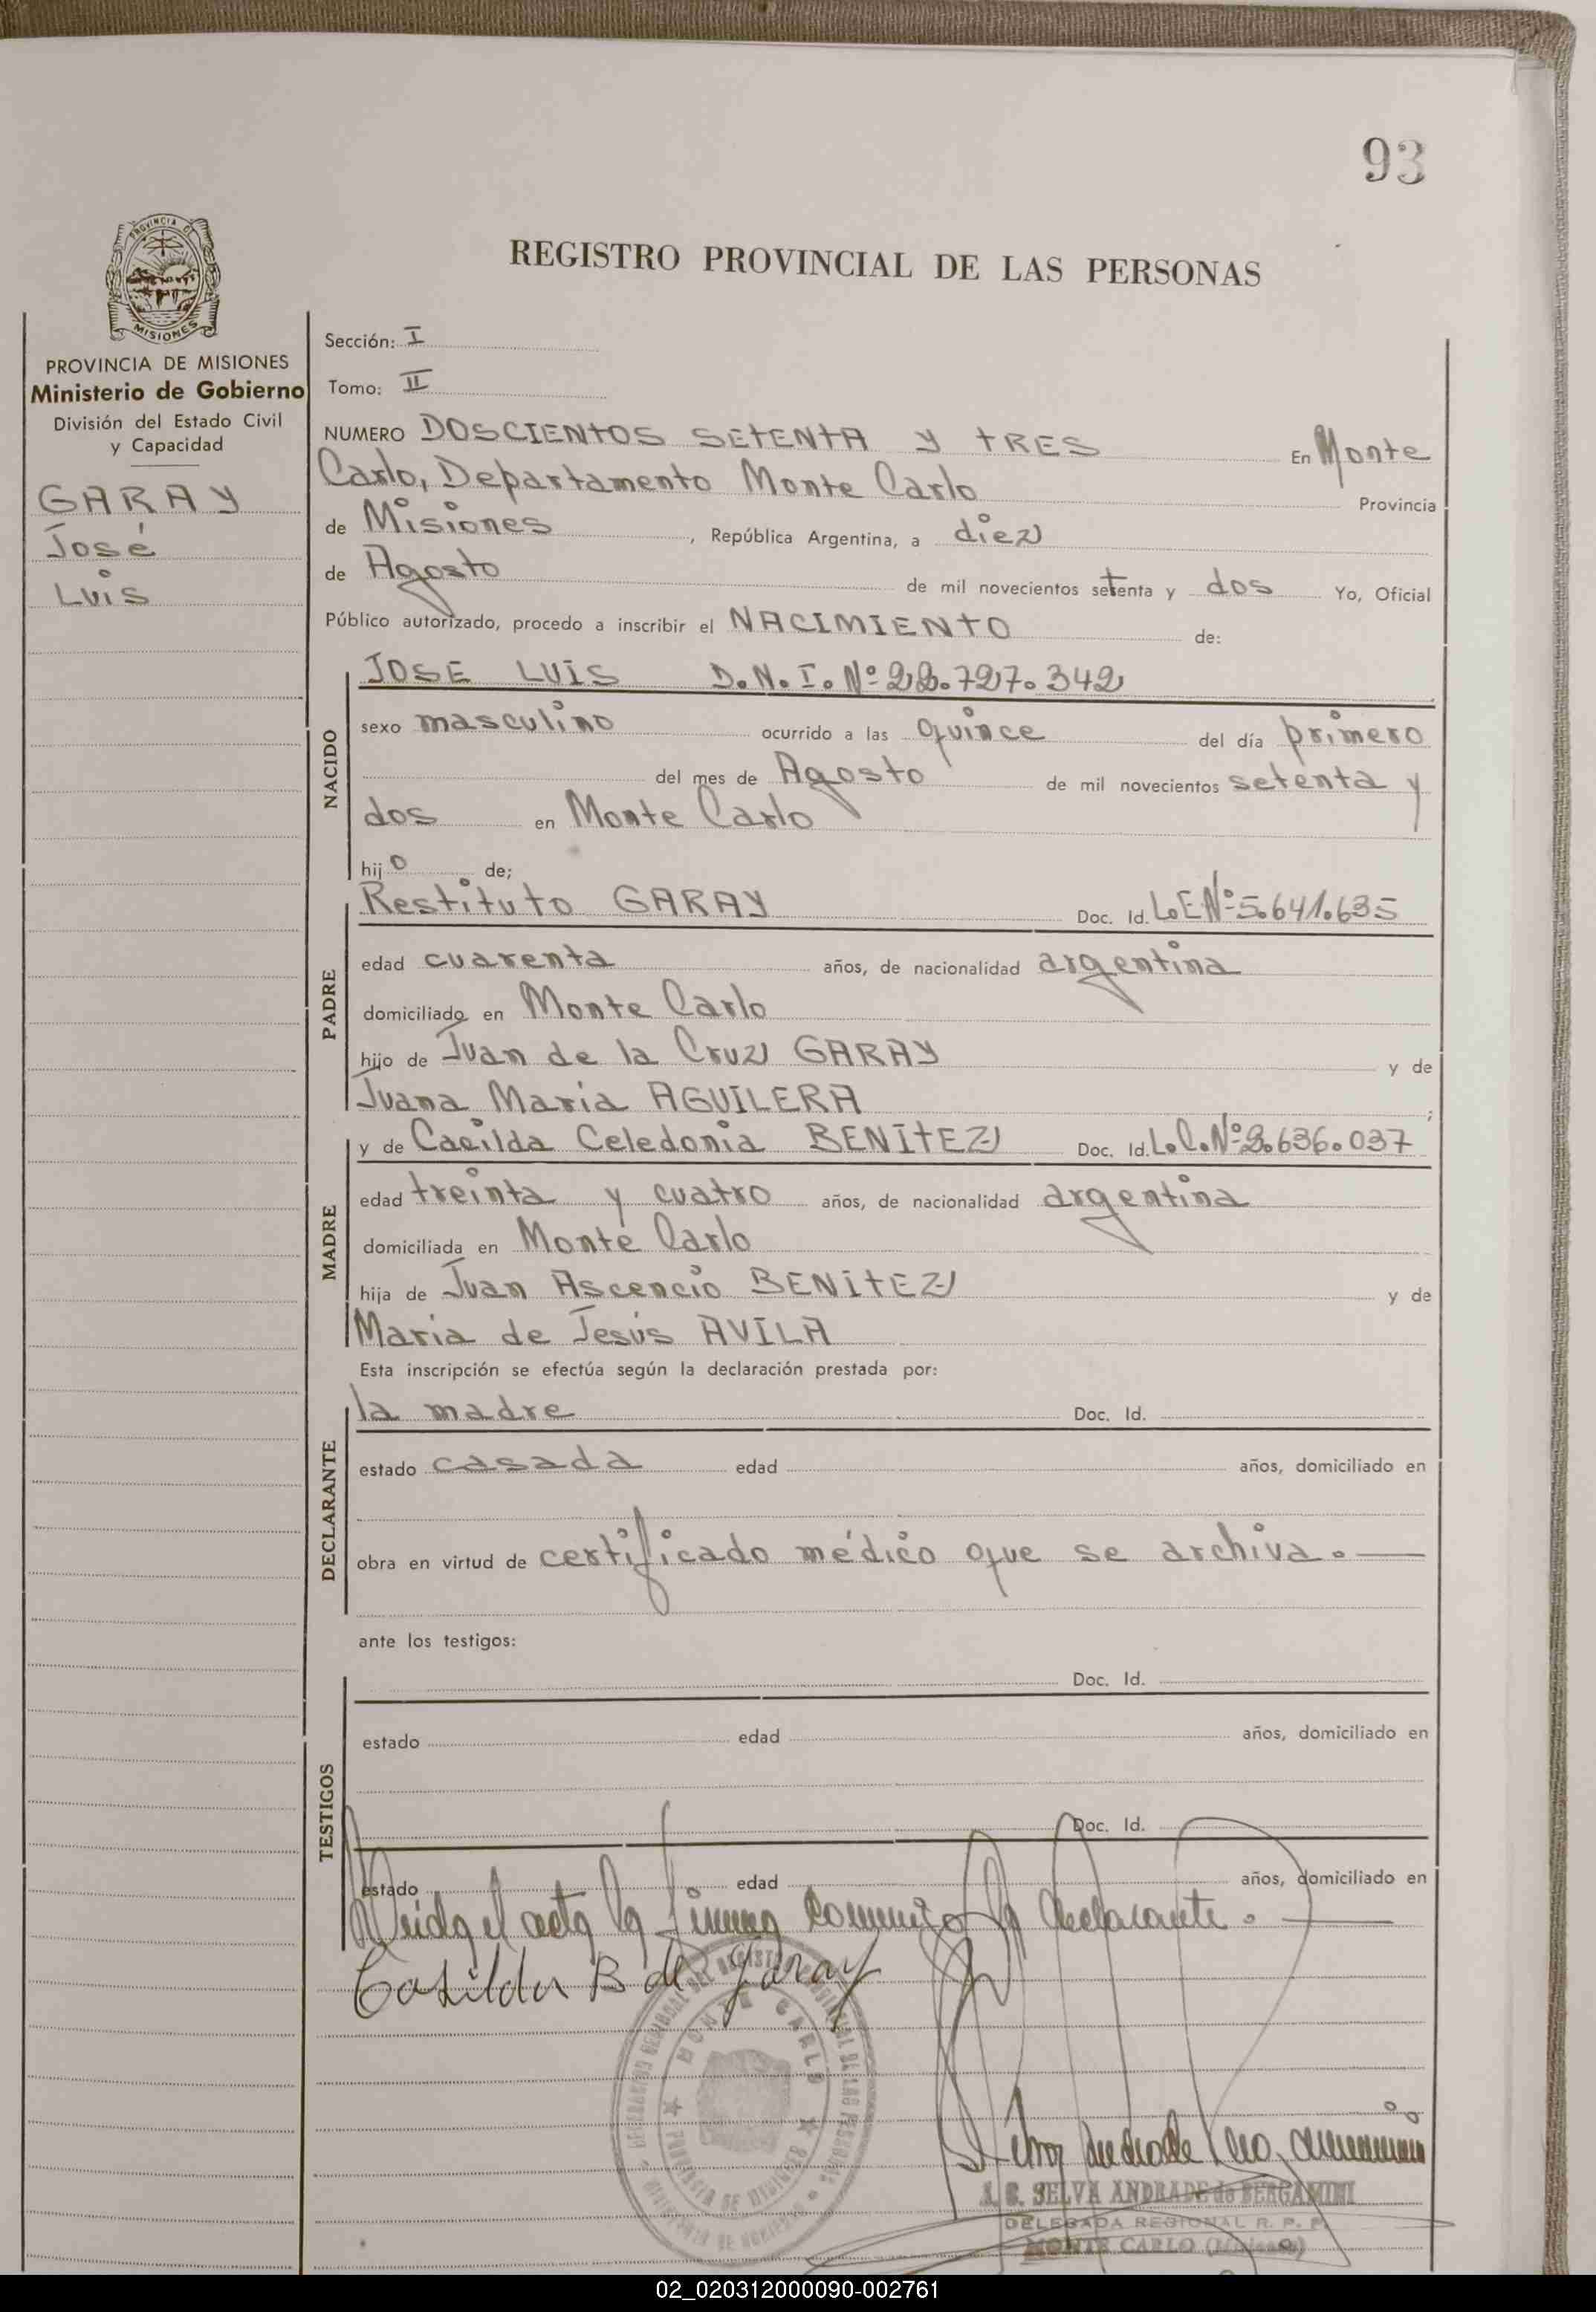 93
REGISTRO PROVINCIAL DE LAS PERSONAS
PROVINCIA DE MISIONES
Ministerio de Gobierno
División del Estado Civil
y Capacidad
GARAY
José
Luis
Sección: I
Tomo: II
NUMERO DOSCIENTOS SETENTA Y TRES En Monte
Carlo, Departamento Monte Carlo Provincia
de Misiones, República Argentina, a diez
de Agosto de mil novecientos setenta y dos Yo, Oficial
Público autorizado, procedo a inscribir el NACIMIENTO de:
NACIDO
JOSE LUIS D.N.I.Nº 22.727.342
sexo masculino ocurrido a las quince del día primero
del mes de Agosto de mil novecientos setenta y
dos en Monte Carlo
hijo de;
PADRE
Restituto GARAY Doc. Id. L.E Nº 5.641.635
edad cuarenta años, de nacionalidad argentina
domiciliado en Monte Carlo
hijo de Juan de la Cruz GARAY y de
Juana Maria AGUILERA;
MADRE
y de Casilda Celedonia BENITEZ Doc. Id. L.C.Nº 2.636.037
edad treinta y cuatro años, de nacionalidad argentina
domiciliada en Monte Carlo
hija de Juan Ascencio BENITEZ y de
Maria de Jesús AVILA
Esta inscripción se efectúa según la declaración prestada por:
DECLARANTE
la madre Doc. Id.
estado casada edad años, domiciliado en
obra en virtud de certificado médico que se archiva.—
ante los testigos:
TESTIGOS
Doc. Id.
estado edad años, domiciliado en
Doc. Id.
estado edad años, domiciliado en
Leida el acta la firma conmigo la declarante.—
Casilda B de Garay
MONTE CARLO
PROVINCIA DE MISIONES
S. E. SELVA ANDRADE de BERGAMINI
DELEGADA REGIONAL R. P. P.
MONTE CARLO (Misiones)
02_020312000090-002761